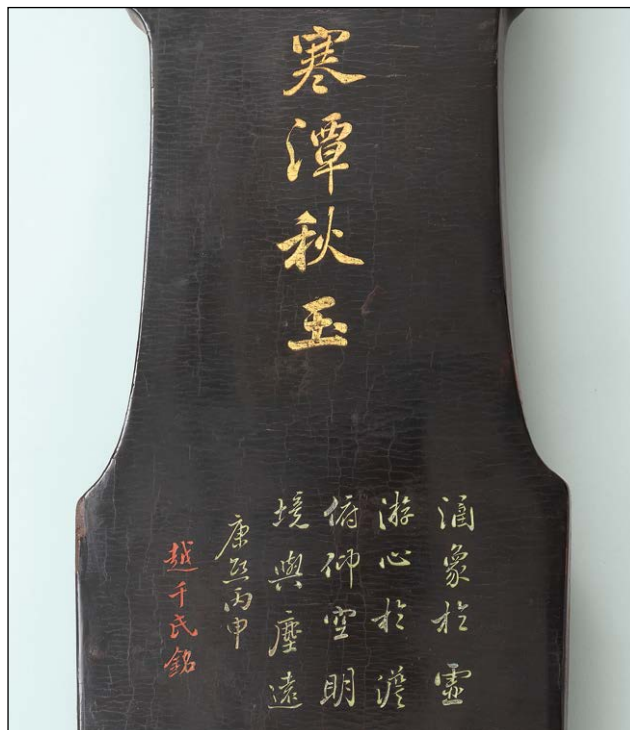 寒潭秋玉
涵象於霊
游心於澹
俯仰空明
境與塵遠
康熙丙申
越千氏銘